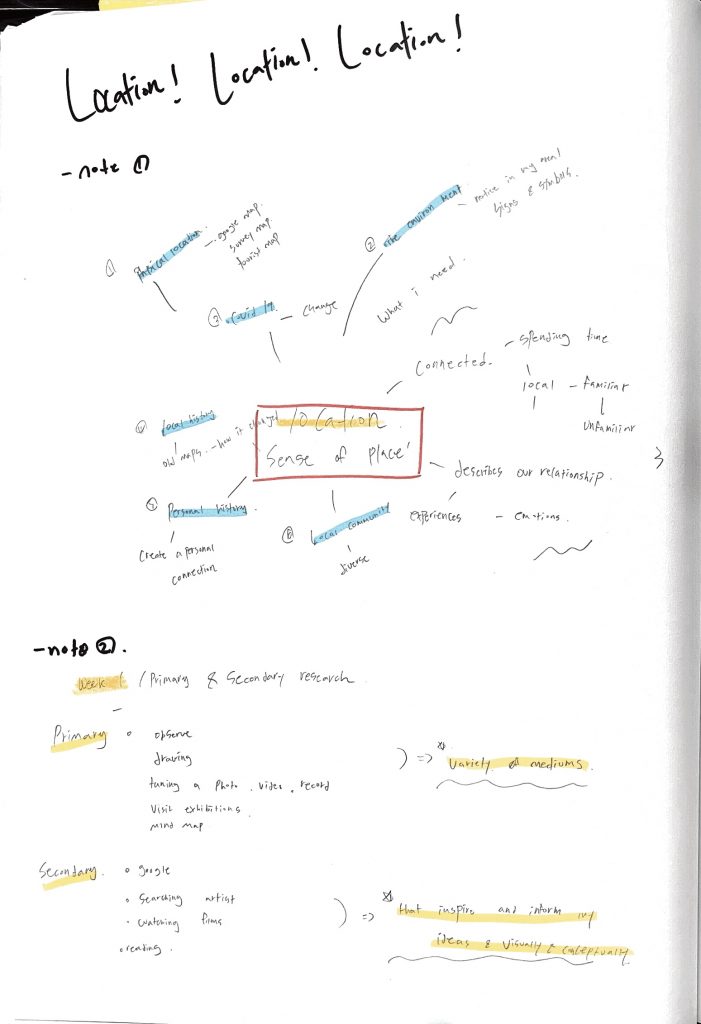 Location! Location! Location!
- note ①
① Physical location
- google map.
survey map
tourist map
② environment
- notice in my area!
signs & symbols.
③ Covid 19 - change
What i need.
Connected. - spending time
local - familiar
unfamiliar
location.
Sense of place'
local history
old maps. - how it changed
describes our relationship.
experiences - emotions.
Personal history.
Create a personal
connection
Local community
diverse
- note ②.
Week 1 / Primary & Secondary research
Primary • observe
drawing
a photo. video. record
Visit exhibitions.
Mind map.
) => * Variety of mediums.
Secondary. • google
• Searching artist
• watching films
• reading.
) => * that inspire and inform my
ideas & visually & conceptually